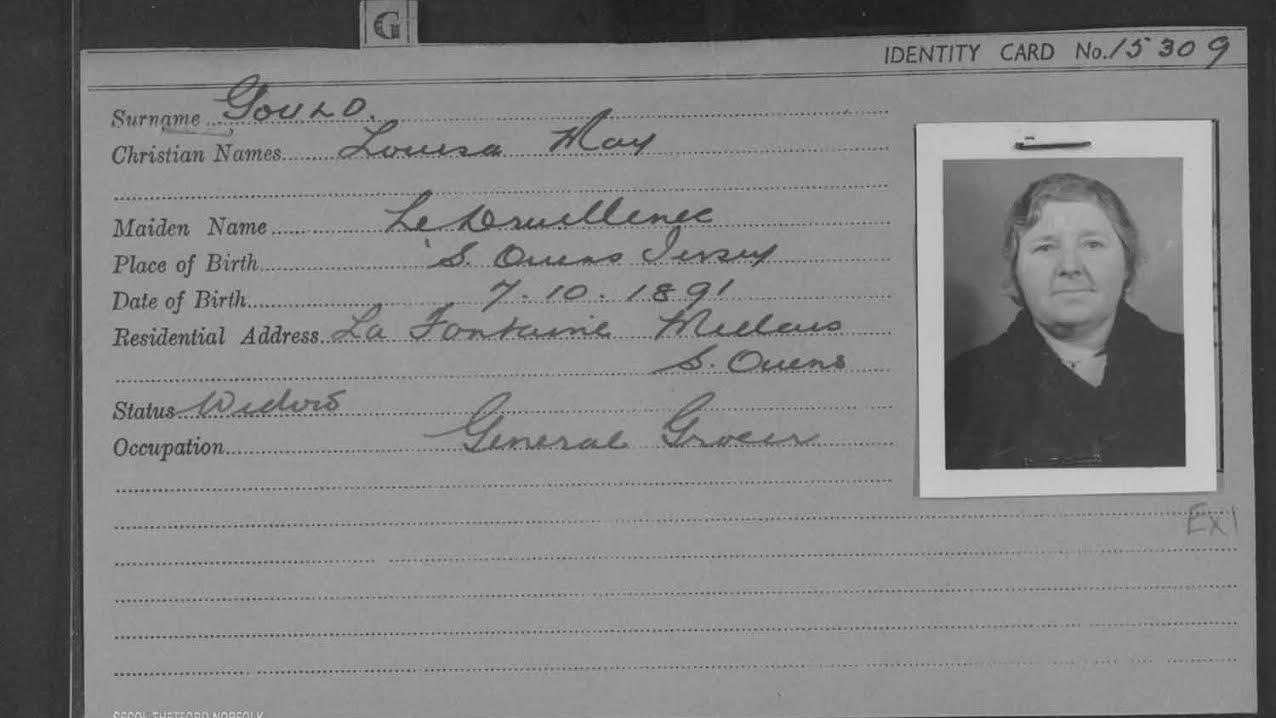 G
IDENTITY CARD No. 15309
Surname Gould.
Christian Names Louisa May
Maiden Name Le Druillenec
Place of Birth S. Ouens Jersey
Date of Birth 7.10.1891
Residential Address La Fontaine Millais
S. Ouens
Status Widow
Occupation General Grocer
Ex 1